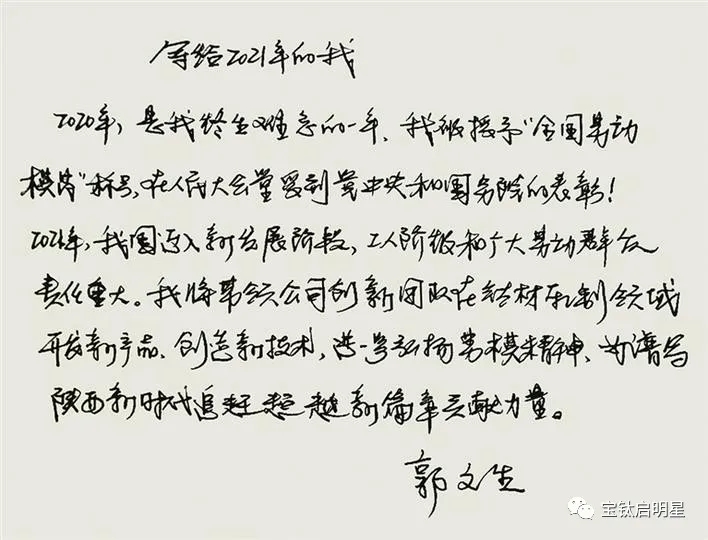 写给2021年的我
2020年，是我终生难忘的一年，我被授予"全国劳动
模范"称号，在人民大会堂受到党中央和国务院的表彰！
2021年，我国迈入新发展阶段，工人阶级和广大劳动群众
责任重大。我将带领公司创新团队在钛材轧制领域
开发新产品、创造新技术，进一步弘扬劳模精神、为谱写
陕西新时代追赶超越新篇章贡献力量。
郭文生
宝钛启明星